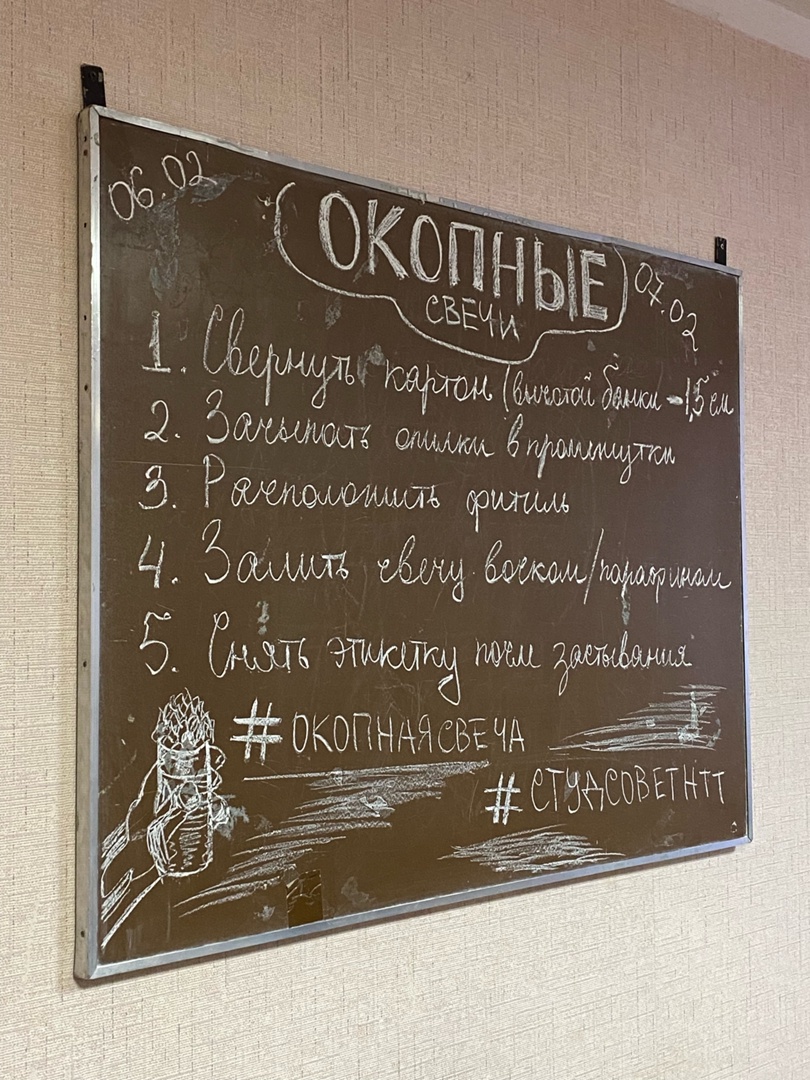 06.02
ОКОПНЫЕ
СВЕЧИ
07.02
1. Свернуть картон (высотой банки -1,5 см
2. Засыпать опилки в промежутки
3. Расположить фитиль
4. Залить свечу воском/парафином
5. Снять этикетку после застывания
#ОКОПНАЯСВЕЧА
#СТУДСОВЕТНТТ